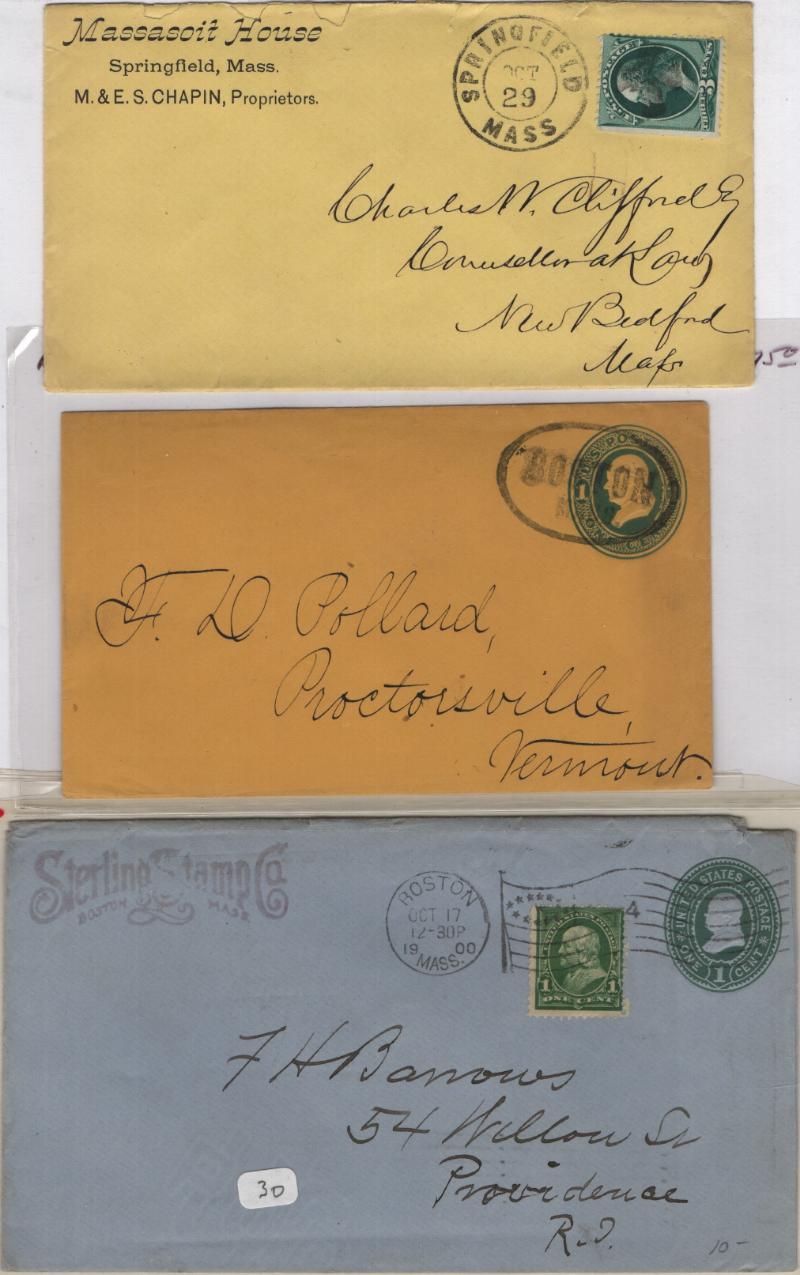 Massasoit House
Springfield, Mass.
M. & E. S. CHAPIN, Proprietors.
SPRINGFIELD
OCT
29
MASS
U.S. POSTAGE
3
Charles W. Clifford Esq
Counsellor at Law
New Bedford
Mass
BOSTON
U.S. POST
1
F. D. Pollard,
Proctorsville,
Vermont.
Sterling Stamp Co.
BOSTON MASS.
BOSTON
OCT 17
12-30P
19 00
MASS.
4
1 1
ONE CENT
UNITED STATES POSTAGE
ONE 1 CENT
F H Barrows
54 Willow St
Providence
R.I.
30
10-